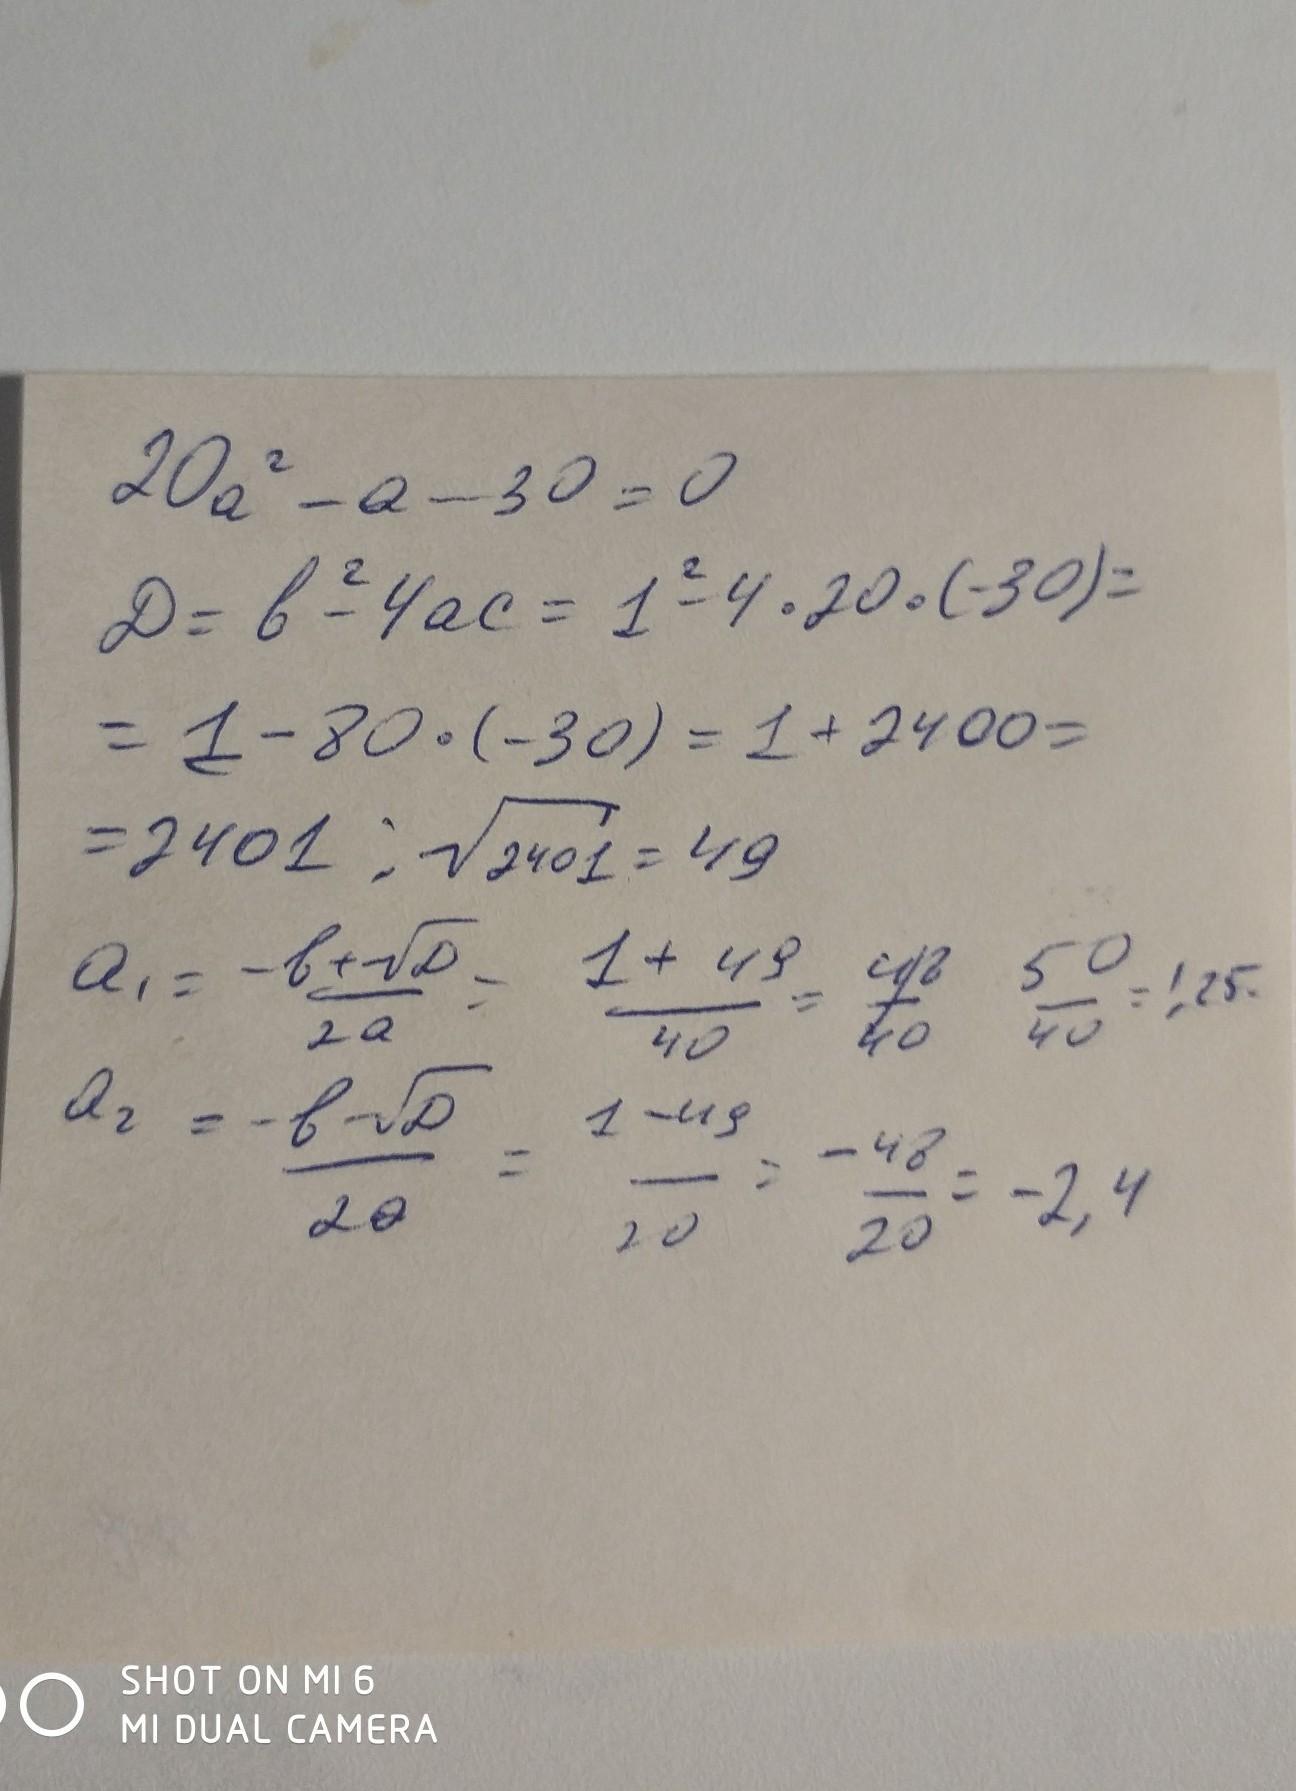 20a² - a - 30 = 0
D = b² - 4ac = 1² - 4 · 20 · (-30) =
= 1 - 80 · (-30) = 1 + 2400 =
= 2401 ; √2401 = 49
a₁ = (-b + √D)/(2a) = (1 + 49)/40 = 48/40 50/40 = 1,25.
a₂ = (-b - √D)/(2a) = (1 - 49)/20 = -48/20 = -2,4
SHOT ON MI 6
MI DUAL CAMERA